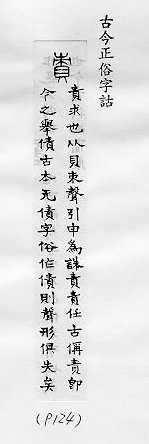 古今正俗字詁
責
責求也从貝朿聲引申為誅責責任古稱責即
今之舉債古本无債字俗作債則聲形俱失矣
(P124)